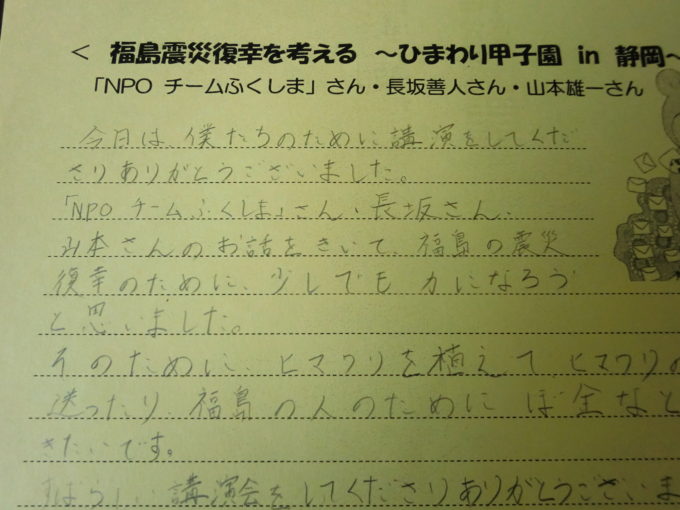 < 福島震災復幸を考える ～ひまわり甲子園 in 静岡～
「NPO チームふくしま」さん・長坂善人さん・山本雄一さん
今日は、僕たちのために講演をしてくだ
さりありがとうございました。
「NPO チームふくしま」さん、長坂さん、
山本さんのお話をきいて、福島の震災
復幸のために、少しでも力になろう
と思いました。
そのために、ヒマワリを植えて、ヒマワリの
送ったり、福島の人のためにぼ金など
きたいです。
すばらしい講演会をしてくださりありがとうございま